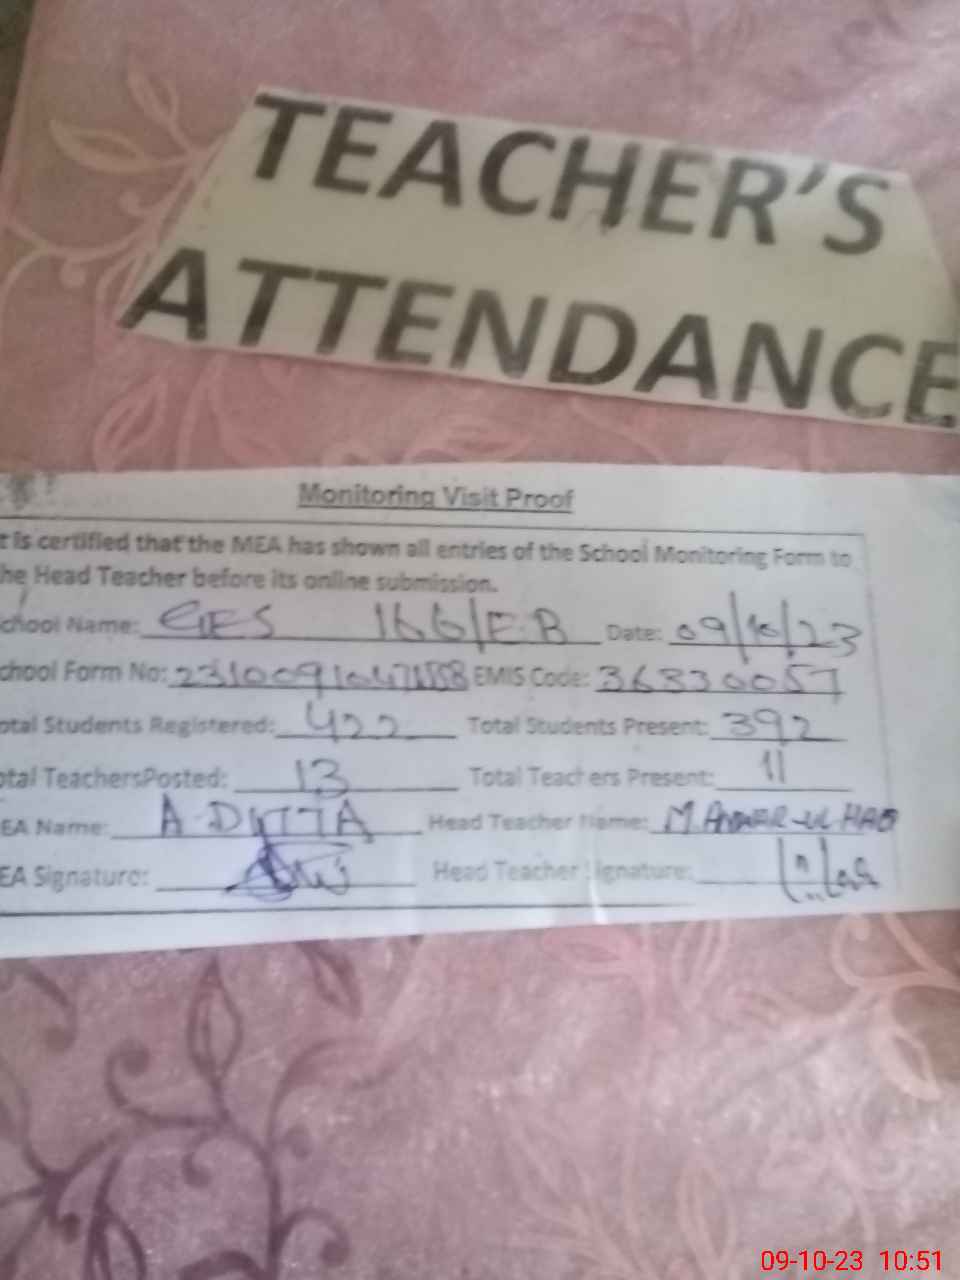 TEACHER'S
ATTENDANCE
Monitoring Visit Proof
t is certified that the MEA has shown all entries of the School Monitoring Form to
he Head Teacher before its online submission.
chool Name: GES 166/E.B Date: 09/10/23
chool Form No: EMIS Code: 36330057
otal Students Registered: 422 Total Students Present: 392
otal TeachersPosted: 13 Total Teachers Present: 11
EA Name: A. DITTA Head Teacher Name: M. ANWAR-UL-HAQ
EA Signature: Head Teacher Signature:
09-10-23 10:51